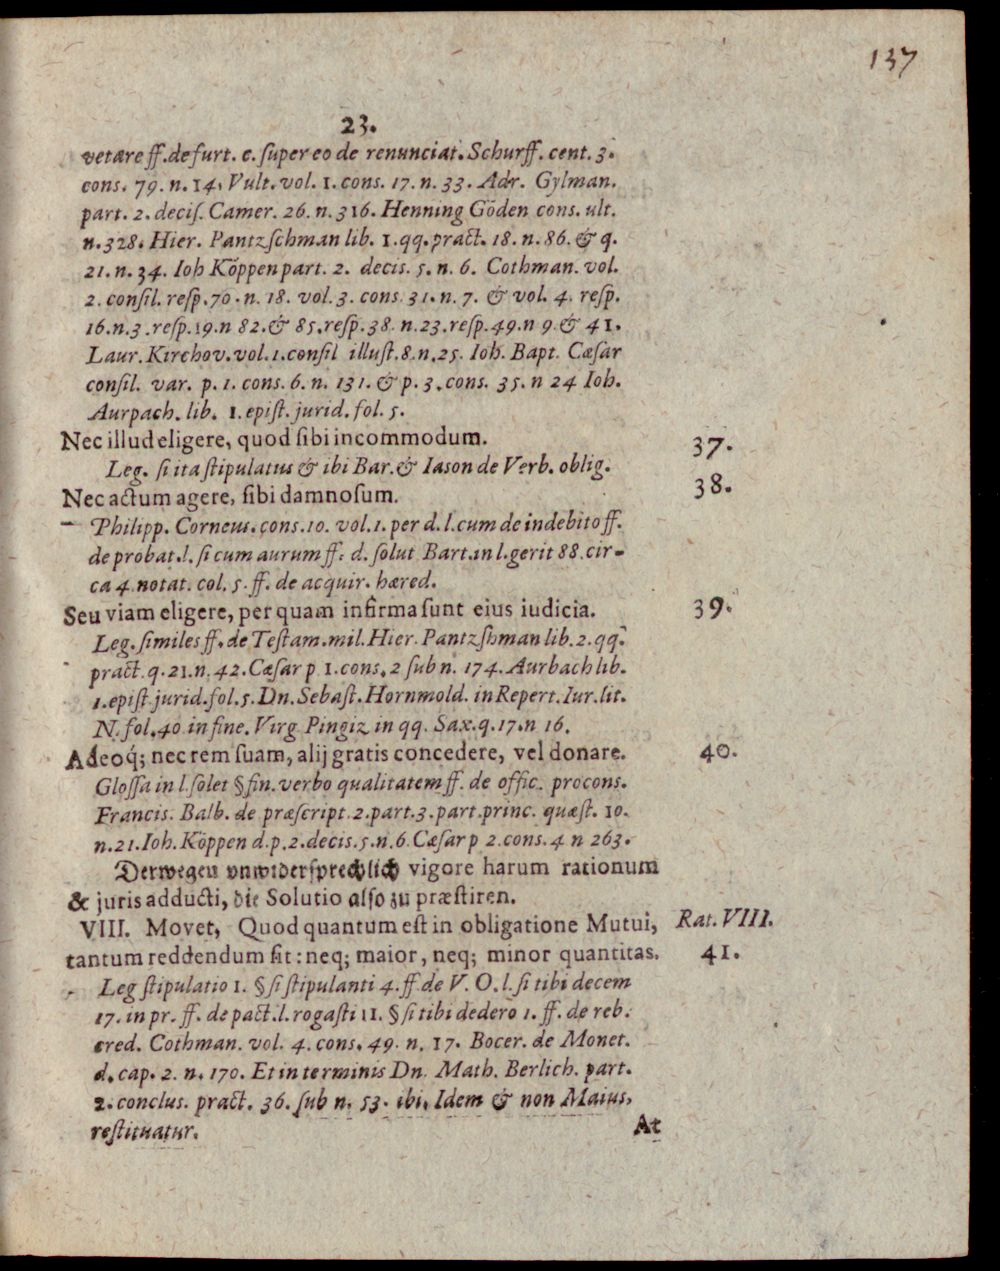 137
23.
vetare ff. de furt. c. ſuper eo de renunciat. Schurff. cent. 3.
cons. 79. n. 14. Vult. vol. 1. cons. 17. n. 33. Adr. Gylman.
part. 2. deciſ. Camer. 26. n. 316. Henning Göden cons. ult.
n. 328. Hier. Pantzſchman lib. 1. qq. pract. 18. n. 86. & q.
21. n. 34. Ioh Köppen part. 2. decis. 5. n. 6. Cothman. vol.
2. conſil. reſp. 70. n. 18. vol. 3. cons. 31. n. 7. & vol. 4. reſp.
16. n. 3. reſp. 19. n 82. & 85. reſp. 38. n. 23. reſp. 49. n 9. & 41.
Laur. Kirchov. vol. 1. conſil illuſt. 8. n. 25. Ioh. Bapt. Cæſar
conſil. var. p. 1. cons. 6. n. 131. & p. 3. cons. 35. n 24 Ioh.
Aurpach. lib. 1. epiſt. jurid. fol. 5.
Nec illud eligere, quod ſibi incommodum. 37.
Leg. ſi ita ſtipulatus & ibi Bar. & Iason de Verb. oblig.
Nec actum agere, ſibi damnoſum. 38.
Philipp. Corneus. cons. 10. vol. 1. per d. l. cum de indebito ff.
de probat. l. ſi cum aurum ff. d. ſolut Bart. in l. gerit 88. cir-
ca 4 notat. col. 5. ff. de acquir. hæred.
Seu viam eligere, per quam infirma ſunt eius iudicia. 39.
Leg. ſimiles ff. de Teſtam. mil. Hier. Pantzſhman lib. 2. qq.
pract. q. 21. n. 42. Cæſar p 1. cons. 2 ſub n. 174. Aurbach lib.
1. epiſt jurid. fol. 5. Dn. Sebaſt. Hornmold. in Repert. Iur. lit.
N. fol. 40 in fine. Virg Pingiz in qq. Sax. q. 17. n 16.
Adeoq́; nec rem ſuam, alij gratis concedere, vel donare. 40.
Gloſſa in l. ſolet § fin. verbo qualitatem ff. de offic. procons.
Francis. Balb. de præſcript. 2. part. 3. part. princ. quæſt. 10.
n. 21. Ioh. Köppen d. p. 2. decis. 5. n. 6. Cæſar p 2. cons. 4 n 263.
Derwegen vnwiderſprechlich vigore harum rationum
& juris adducti, die Solutio alſo zu præſtiren.
VIII. Movet, Quod quantum eſt in obligatione Mutui, Rat. VIII.
tantum reddendum ſit: neq; maior, neq; minor quantitas. 41.
Leg ſtipulatio 1. § ſi ſtipulanti 4. ff. de V. O. l. ſi tibi decem
17. in pr. ff. de pact. l. rogaſti 11. § ſi tibi dedero 1. ff. de reb.
cred. Cothman. vol. 4. cons. 49. n. 17. Bocer. de Monet.
d. cap. 2. n. 170. Et in terminis Dn. Math. Berlich. part.
2. conclus. pract. 36. ſub n. 53. ibi, Idem & non Maius,
reſtituatur. At